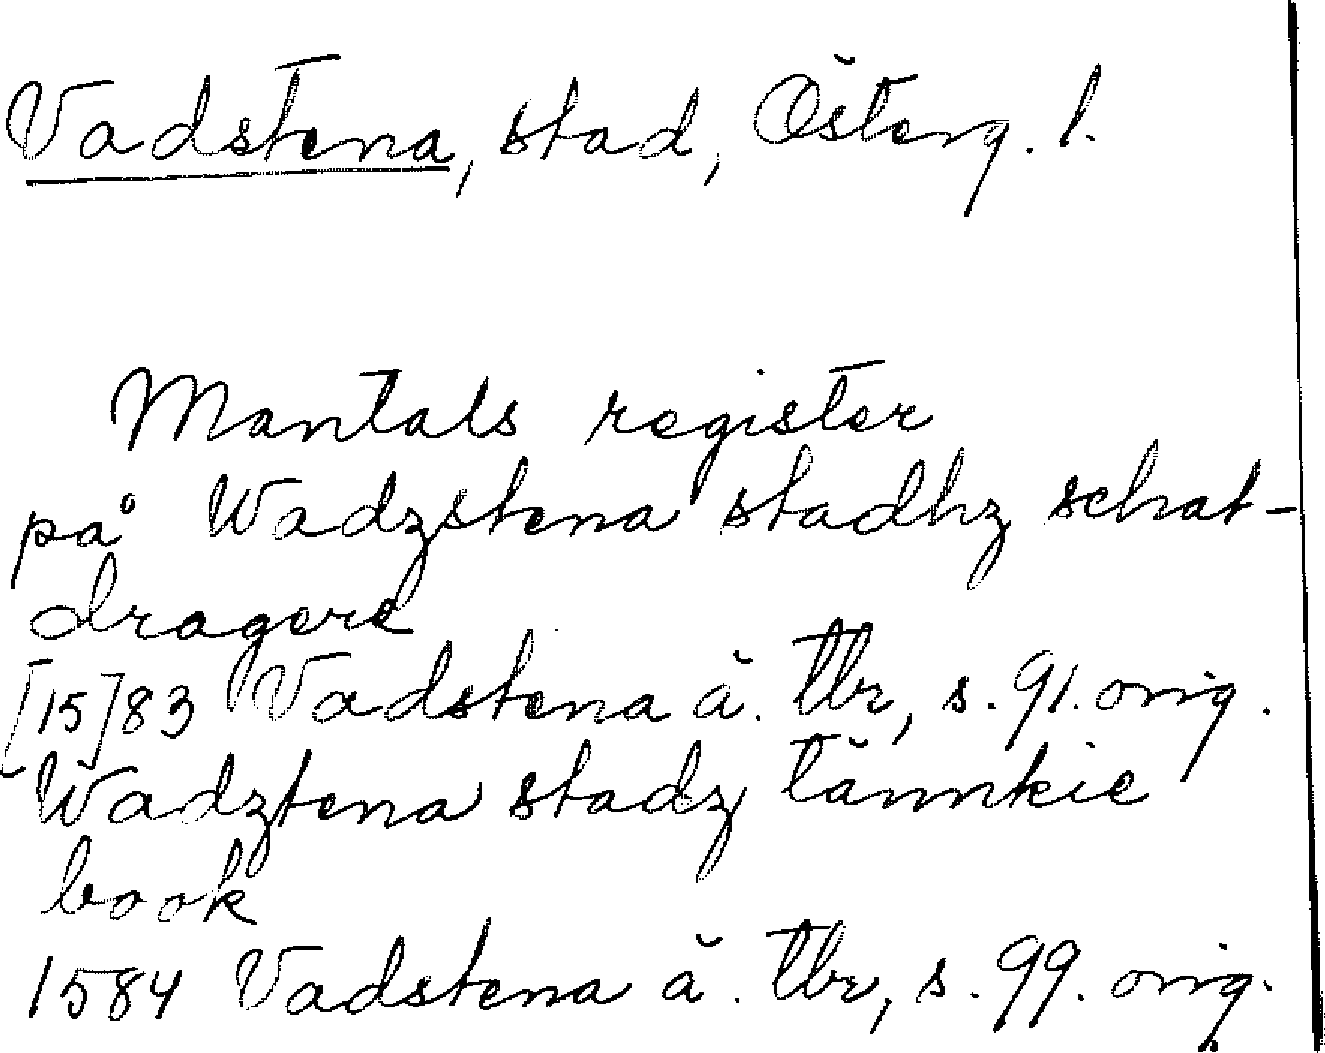 Vadstena, stad, Österg. l.
Mantals register
på Wadzstena stadhz schat-
dragere
[15]83 Vadstena ä. tbr, s. 91. orig.
Wadztena stadz tännkie
book
1584 Vadstena ä. tbr, s. 99. orig.